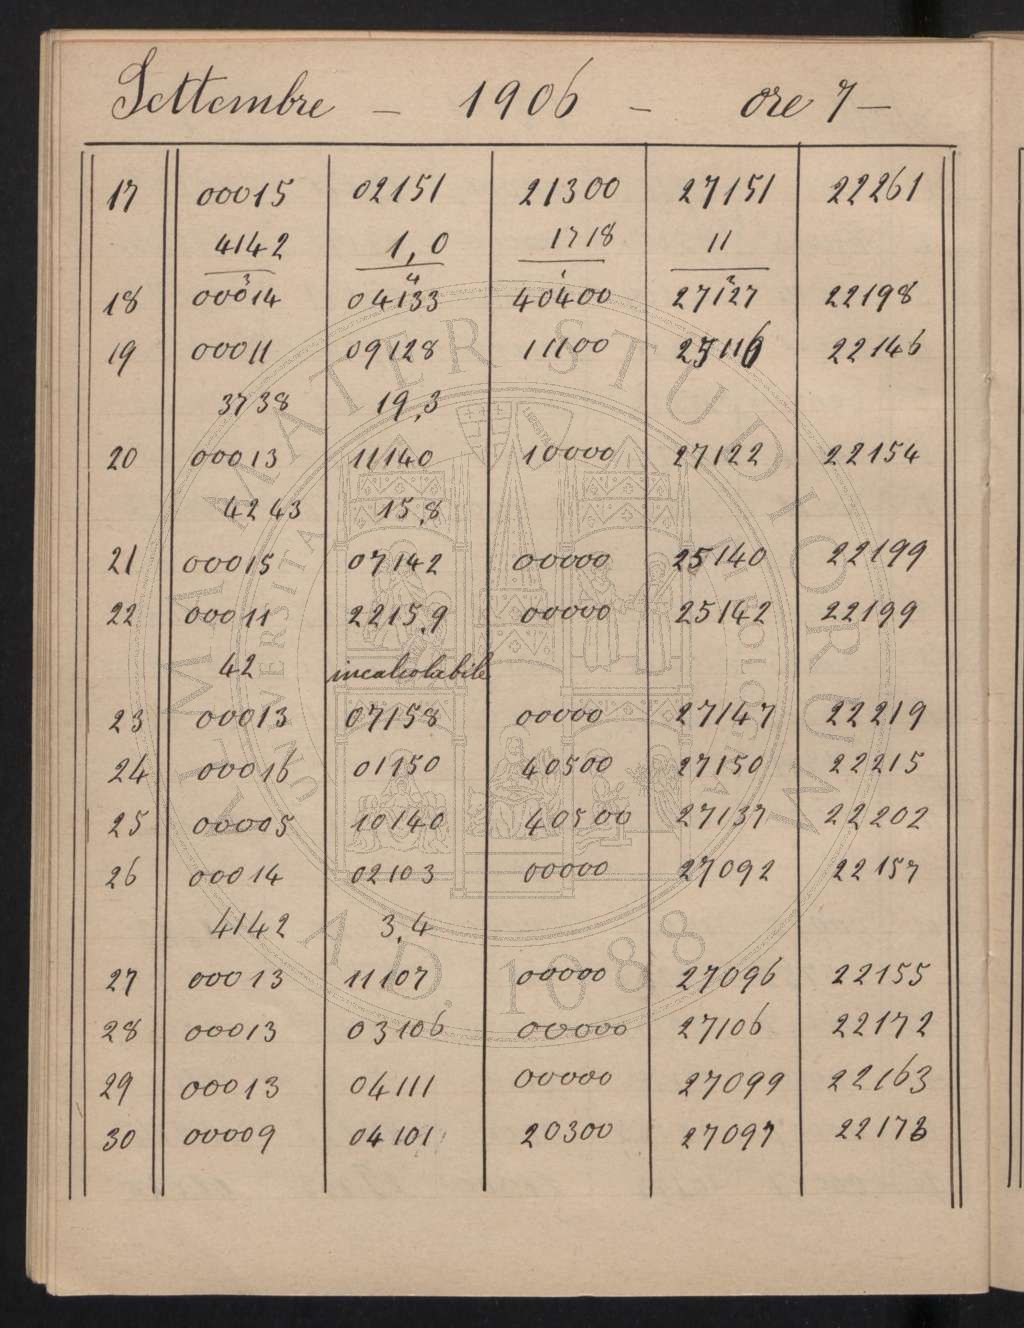 Settembre - 1906 - ore 7 -
17 00015 02151 21300 27151 22261
4142 1,0 1718 11
3 4 1 2
18 00014 04133 40400 27127 22198
19 00011 09128 11100 27116 22146
3738 19,3
20 00013 11140 10000 27122 22154
4243 15,8
21 00015 07142 00000 25140 22199
22 00011 2215,9 00000 25142 22199
42 incalcolabile
23 00013 07158 00000 27147 22219
24 00016 01150 40500 27150 22215
25 00005 10140 40500 27137 22202
26 00014 02103 00000 27092 22157
4142 3,4
27 00013 11107 00000 27096 22155
28 00013 03106 00000 27106 22172
29 00013 04111 00000 27099 22163
30 00009 04101 20300 27097 22173
ALMA MATER STUDIORUM
UNIVERSITÀ DI BOLOGNA
LIBERTAS
A.D. 1088